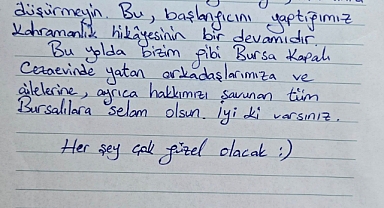 düşürmeyin. Bu, başlangıcını yaptığımız
kahramanlık hikâyesinin bir devamıdır.
Bu yolda bizim gibi Bursa Kapalı
Cezaevinde yatan arkadaşlarımıza ve
ailelerine, ayrıca hakkımızı savunan tüm
Bursalılara selam olsun. İyi ki varsınız.
Her şey çok güzel olacak :)